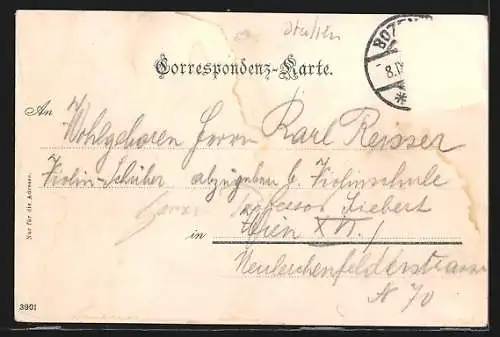 Italien
BOZEN
8.IX
Correspondenz-Karte.
An Wohlgeboren Herrn Karl Reisser
Violin-Schüler abzugeben b. Violinschule
Professor Siebert
in Wien XVI.
Neulerchenfelderstrasse
N 70
Nur für die Adresse.
3901